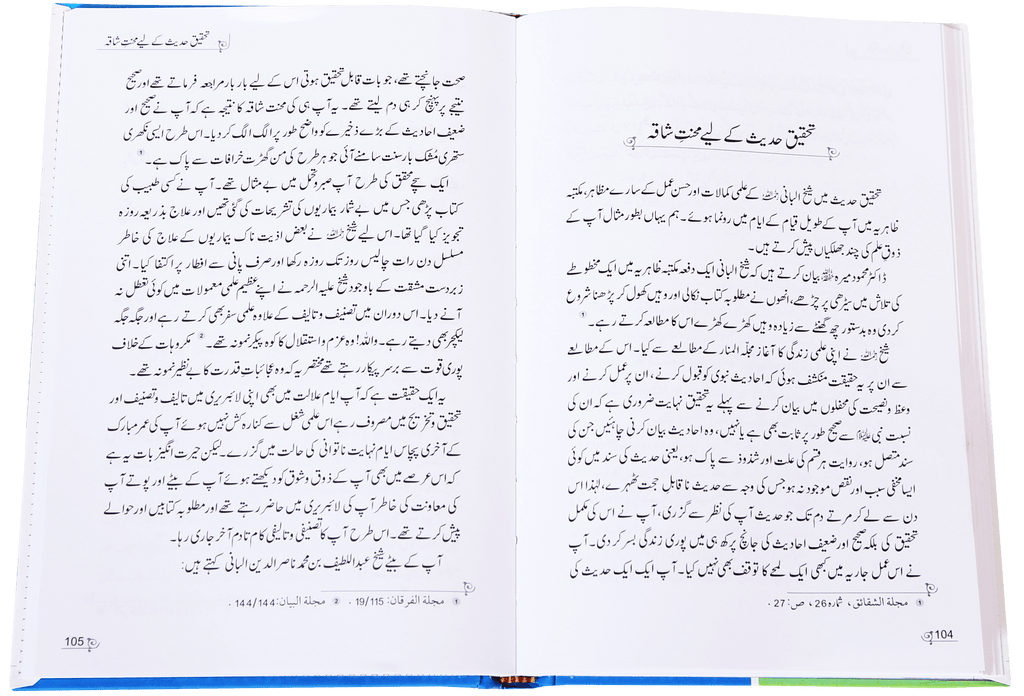 تحقیق حدیث کے لیے محنتِ شاقہ
تحقیق حدیث میں شیخ البانی رحمہ اللہ کے علمی کمالات اور حسن عمل کے سارے مظاہر، مکتبہ
ظاہریہ میں آپ کے طویل قیام کے ایام میں رونما ہوئے۔ ہم یہاں بطور مثال آپ کے
ذوق علم کی چند جھلکیاں پیش کرتے ہیں۔
ڈاکٹر محمود میرہ حفظہ اللہ بیان کرتے ہیں کہ شیخ البانی ایک دفعہ مکتبہ ظاہریہ میں ایک مخطوطے
کی تلاش میں سیڑھی پر چڑھے، انھوں نے مطلوبہ کتاب نکالی اور وہیں کھول کر پڑھنا شروع
کر دی وہ بدستور چھ گھنٹے سے زیادہ وہیں کھڑے کھڑے اس کا مطالعہ کرتے رہے۔ ①
شیخ رحمہ اللہ نے اپنی علمی زندگی کا آغاز مجلّہ المنار کے مطالعے سے کیا۔ اس کے مطالعے
سے ان پر یہ حقیقت منکشف ہوئی کہ احادیث نبوی کو قبول کرنے، ان پر عمل کرنے اور
وعظ و نصیحت کی محفلوں میں بیان کرنے سے پہلے یہ تحقیق نہایت ضروری ہے کہ ان کی
نسبت نبی ﷺ سے صحیح طور پر ثابت بھی ہے یا نہیں، وہ احادیث بیان کرنی چاہئیں جن کی
سند متصل ہو، روایت ہر قسم کی علت اور شذوذ سے پاک ہو، یعنی حدیث کی سند میں کوئی
ایسا مخفی سبب اور نقص موجود نہ ہو جس کی وجہ سے حدیث ناقابل حجت ٹھہرے، لہٰذا اس
دن سے لے کر مرتے دم تک جو حدیث آپ کی نظر سے گزری، آپ نے اس کی مکمل
تحقیق کی بلکہ صحیح اور ضعیف احادیث کی جانچ پرکھ ہی میں پوری زندگی بسر کر دی۔ آپ
نے اس عمل جاریہ میں کبھی ایک لمحے کا توقف بھی نہیں کیا۔ آپ ایک ایک حدیث کی
① مجلة الشقائق، شمارہ 26، ص: 27.
104
تحقیق حدیث کے لیے محنت شاقہ
صحت جانچتے تھے، جو بات قابل تحقیق ہوتی اس کے لیے بار بار مراجعہ فرماتے تھے اور صحیح
نتیجے پر پہنچ کر ہی دم لیتے تھے۔ یہ آپ ہی کی محنت شاقہ کا نتیجہ ہے کہ آپ نے صحیح اور
ضعیف احادیث کے بڑے ذخیرے کو واضح طور پر الگ الگ کر دیا۔ اس طرح ایسی نکھری
ستھری مُشک بار سنت سامنے آئی جو ہر طرح کی من گھڑت خرافات سے پاک ہے۔ ①
ایک سچے محقق کی طرح آپ صبر و تحمل میں بے مثال تھے۔ آپ نے کسی طبیب کی
کتاب پڑھی جس میں بے شمار بیماریوں کی تشریحات کی گئی تھیں اور علاج بذریعہ روزہ
تجویز کیا گیا تھا۔ اس لیے شیخ رحمہ اللہ نے بعض اذیت ناک بیماریوں کے علاج کی خاطر
مسلسل دن رات چالیس روز تک روزہ رکھا اور صرف پانی سے افطار پر اکتفا کیا۔ اتنی
زبردست مشقت کے باوجود شیخ علیہ الرحمہ نے اپنے عظیم علمی معمولات میں کوئی تعطل نہ
آنے دیا۔ اس دوران میں تصنیف و تالیف کے علاوہ علمی سفر بھی کرتے رہے اور جگہ جگہ
لیکچر بھی دیتے رہے۔ واللہ! وہ عزم و استقلال کا کوہ پیکر نمونہ تھے۔ ② مکروہات کے خلاف
پوری قوت سے برسر پیکار رہتے تھے مختصر یہ کہ وہ عجائبات قدرت کا بے نظیر نمونہ تھے۔
یہ ایک حقیقت ہے کہ آپ ایام علالت میں بھی اپنی لائبریری میں تالیف و تصنیف اور
تحقیق و تخریج میں مصروف رہے اس علمی شغل سے کنارہ کش نہیں ہوئے آپ کی عمر مبارک
کے آخری پچاس ایام نہایت ناتوانی کی حالت میں گزرے۔ لیکن حیرت انگیز بات یہ ہے
کہ اس عرصے میں بھی آپ کے ذوق و شوق کو دیکھتے ہوئے آپ کے بیٹے اور پوتے آپ
کی معاونت کی خاطر آپ کی لائبریری میں حاضر رہتے تھے اور مطلوبہ کتابیں اور حوالے
پیش کرتے تھے۔ اس طرح آپ کا تصنیفی و تالیفی کام تا دم آخر جاری رہا۔
آپ کے بیٹے شیخ عبداللطیف بن محمد ناصر الدین البانی کہتے ہیں:
① مجلة الفرقان: 19/115. ② مجلة البيان: 144/144.
105